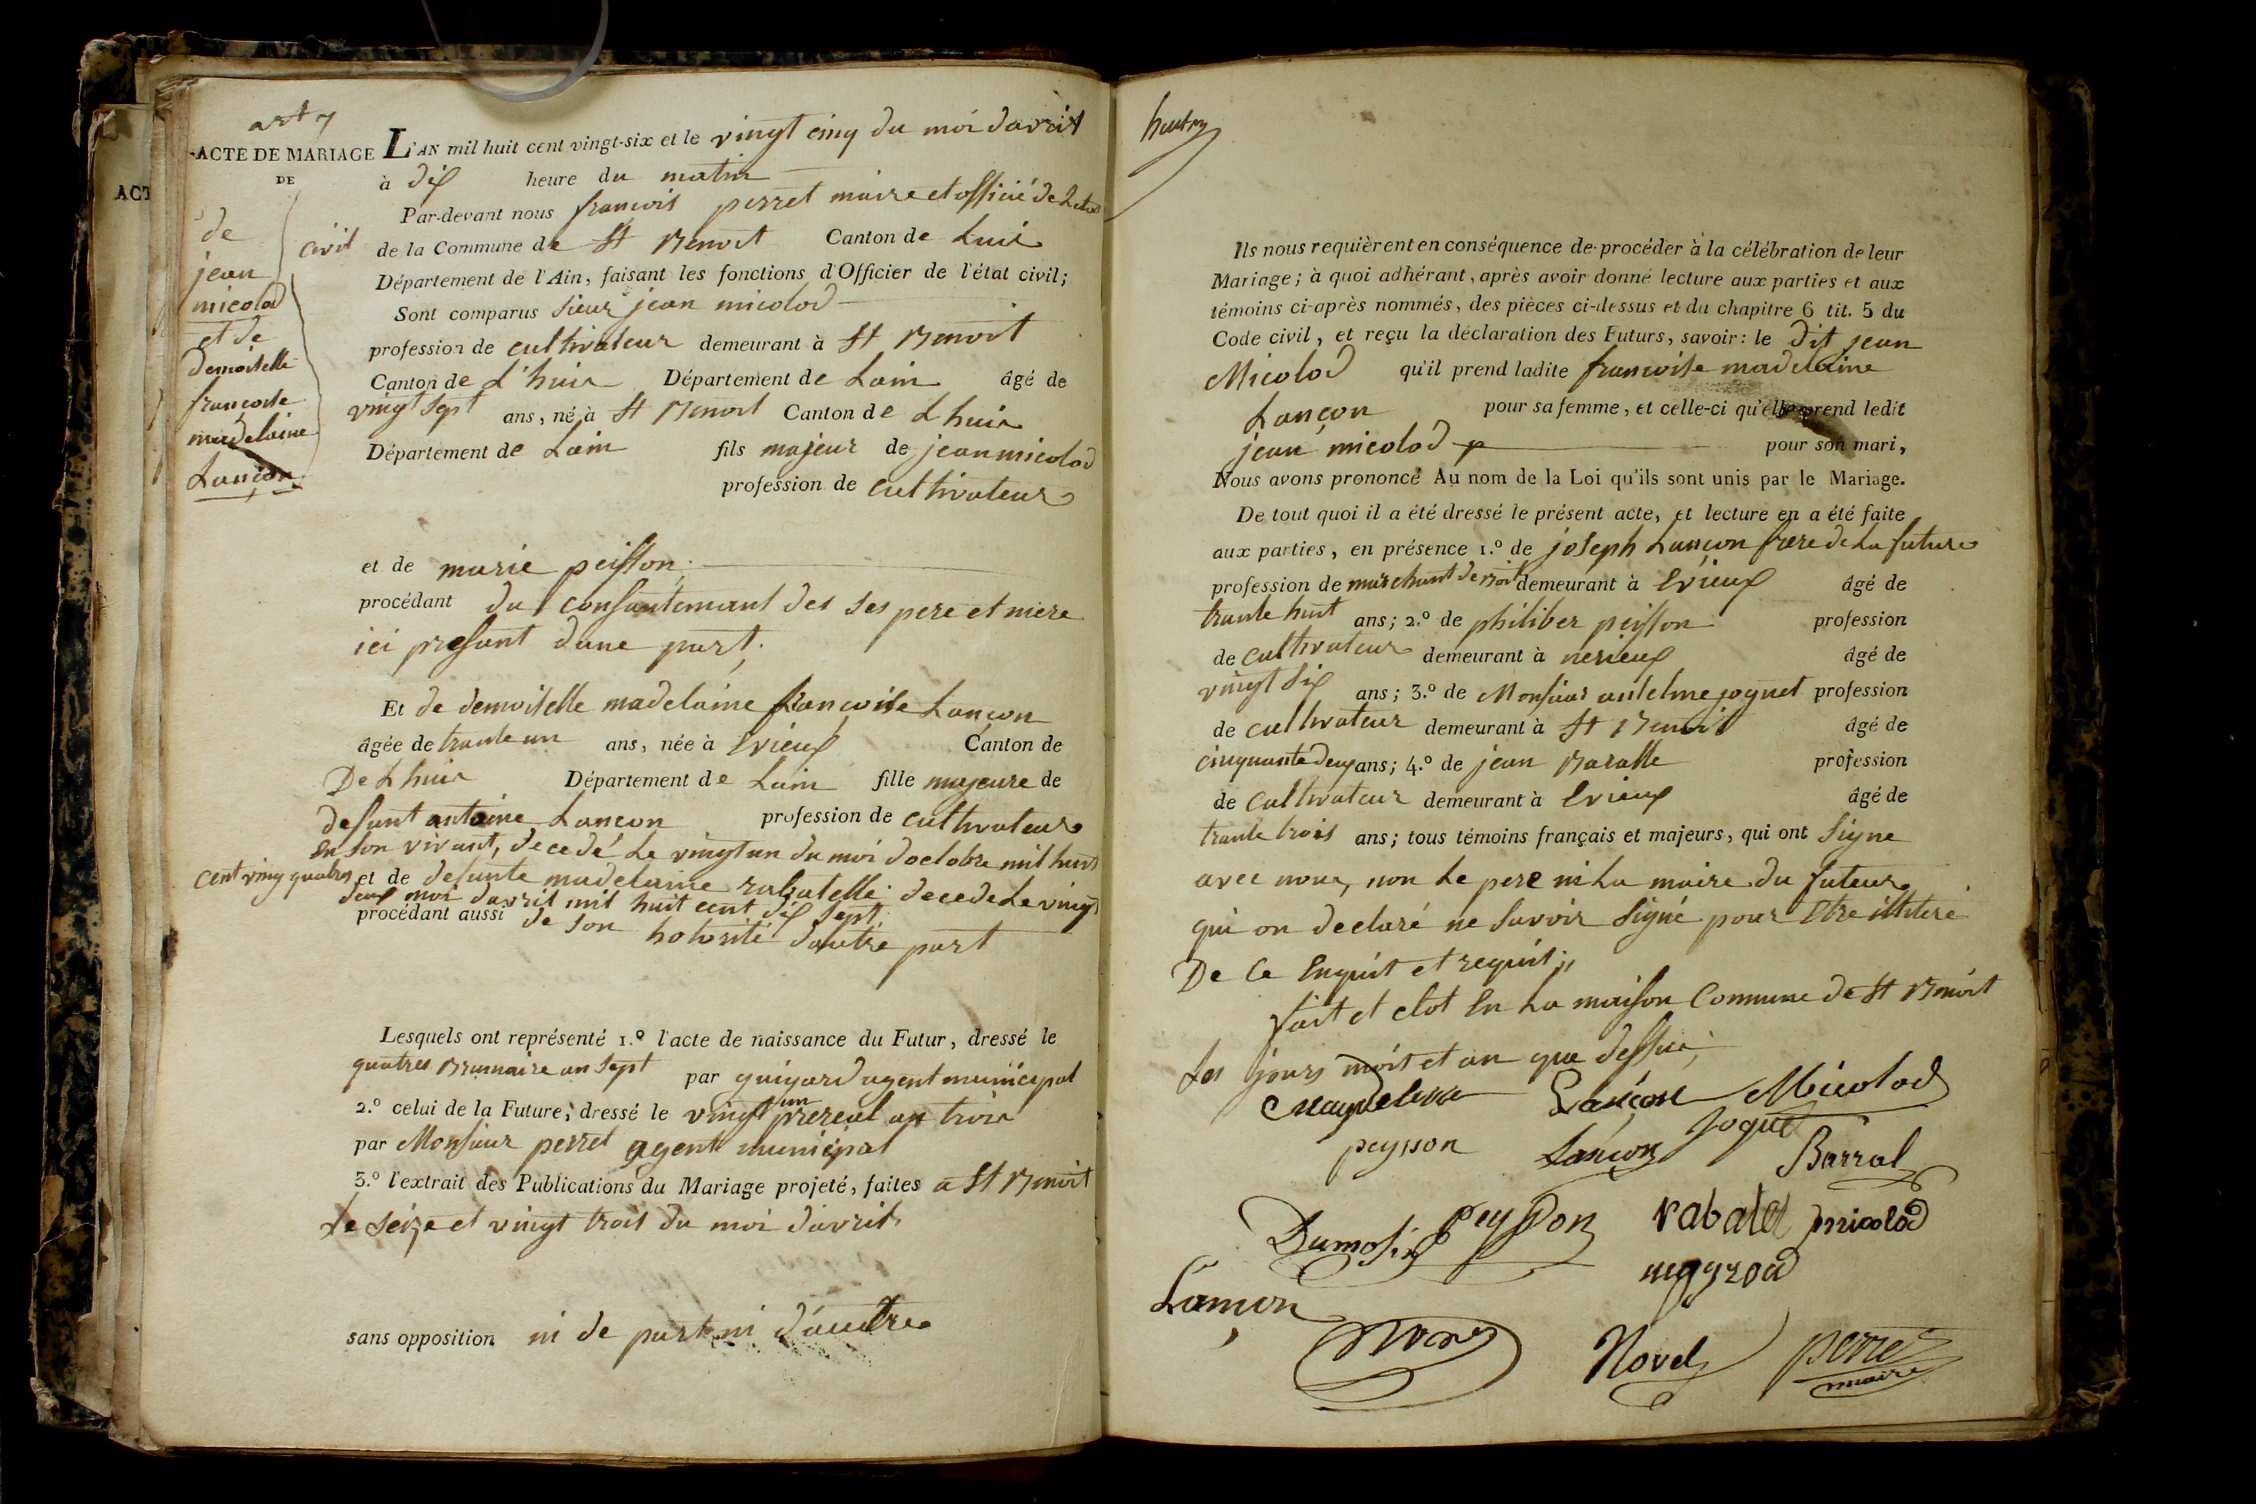 art 7
ACTE DE MARIAGE
DE
de
jean
micolod
et de
demoiselle
francoise
madelaine
Lançon
ACT
L'AN mil huit cent vingt-six et le vingt cinq du moi davril
à dix heure du matin
Par-devant nous francois perret maire et officié de Letat
civil de la Commune de St Benoit Canton de Luis
Département de l'Ain, faisant les fonctions d'Officier de l'état civil;
Sont comparus sieur jean micolod
profession de cultivateur demeurant à St Benoit
Canton de L'huis Département de Lain âgé de
vingt sept ans, né à St Benoit Canton de Lhuis
Département de Lain fils majeur de jean micolod
profession de cultivateur
et de marie peisson
procédant du consantemant des ses pere et mere
ici presant dune part,
Et de demoiselle madelaine francoise Lançon
âgée de trante un ans, née à Evieux Canton de
De Lhuis Département de Lain fille majeure de
defunt antoine Lancon profession de cultivateur
En son vivant, decedé Le vingt un du moi doctobre mil huit
cent ving quatres et de defunte madelaine rabatelle decede Le vingt
deux moi davril mil huit cent dix sept
procédant aussi de son hotorité dautre part
Lesquels ont représenté 1.º l'acte de naissance du Futur, dressé le
quatres Brumaire an sept par guigard agent municipal
2.º celui de la Future, dressé le vingt un prereal an trois
par Monsieur perret agent municipal
3.º l'extrait des Publications du Mariage projeté, faites a St Benoit
Le seize et vingt trois du moi davril
sans opposition ni de part ni d'autre
Ils nous requièrent en conséquence de procéder à la célébration de leur
Mariage; à quoi adhérant, après avoir donné lecture aux parties et aux
témoins ci-après nommés, des pièces ci-dessus et du chapitre 6 tit. 5 du
Code civil, et reçu la déclaration des Futurs, savoir: le dit jean
Micolod qu'il prend ladite francoise madelaine
Lançon pour sa femme, et celle-ci qu'elle prend ledit
jean micolod pour son mari,
Nous avons prononcé Au nom de la Loi qu'ils sont unis par le Mariage.
De tout quoi il a été dressé le présent acte, et lecture en a été faite
aux parties, en présence 1.º de joseph Lançon frere de La future
profession de marchant de Boit demeurant à Evieux âgé de
trante huit ans; 2.º de philiber peisson profession
de cultivateur demeurant à nerieux âgé de
vingt six ans; 3.º de Monsieur antelme joguet profession
de cultivateur demeurant à St Benoit âgé de
cinquante deux ans; 4.º de jean Baralle profession
de cultivateur demeurant à Evieux âgé de
trante trois ans; tous témoins français et majeurs, qui ont signe
avec nous, non Le pere ni La maire du futeur
qui on declaré ne savoir signé pour Etre illiteré
De Ce Enquit et requit
fait et clot En La maison Commune de St Benoit
Les jours moit et an que dessus
Lançon Micolod
peysson Lançon Joguet Barral
Dumolin peysson rabatel micolod
Lançon
Novel perret
maire